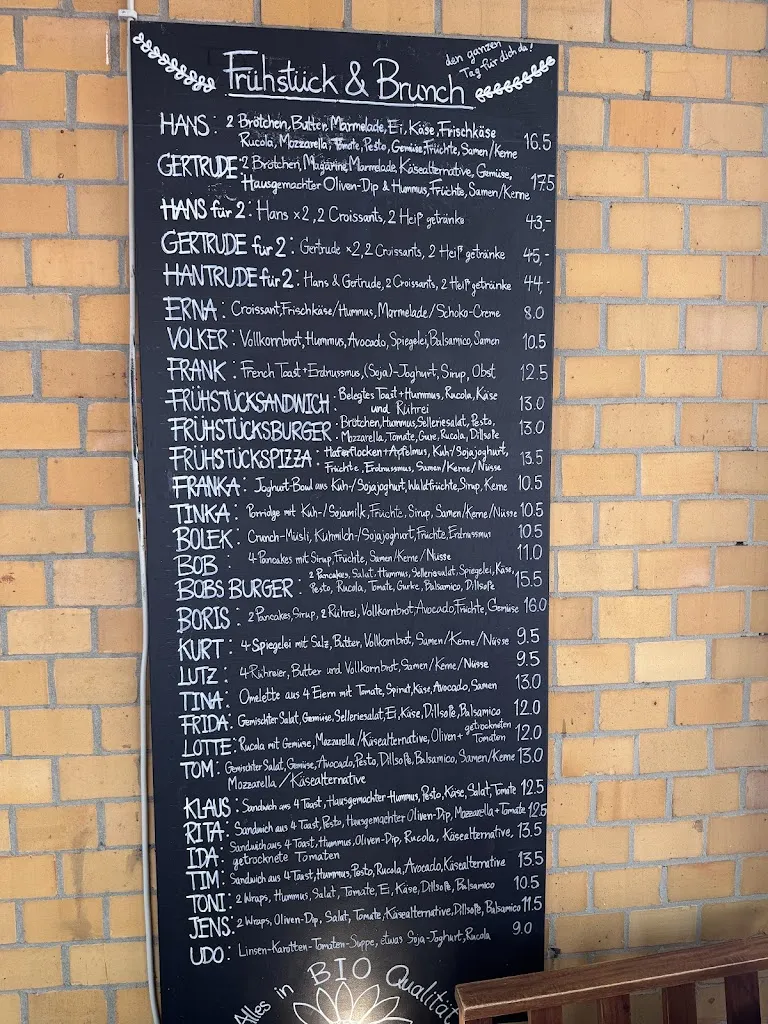 Frühstück & Brunch
den ganzen
Tag für dich da!
HANS: 2 Brötchen, Butter, Marmelade, Ei, Käse, Frischkäse
Rucola, Mozzarella, Tomate, Pesto, Gemüse, Früchte, Samen/Kerne 16.5
GERTRUDE: 2 Brötchen, Magarine, Marmelade, Käsealternative, Gemüse,
Hausgemachter Oliven-Dip & Hummus, Früchte, Samen/Kerne 17.5
HANS für 2: Hans x2, 2 Croissants, 2 Heißgetränke 43,-
GERTRUDE für 2: Gertrude x2, 2 Croissants, 2 Heißgetränke 45,-
HANTRUDE für 2: Hans & Gertrude, 2 Croissants, 2 Heißgetränke 44,-
ERNA: Croissant, Frischkäse/Hummus, Marmelade/Schoko-Creme 8.0
VOLKER: Vollkornbrot, Hummus, Avocado, Spiegelei, Balsamico, Samen 10.5
FRANK: French Toast + Erdnussmus, (Soja)-Joghurt, Sirup, Obst 12.5
FRÜHSTÜCKSANDWICH: Belegtes Toast + Hummus, Rucola, Käse
und Rührei 13.0
FRÜHSTÜCKSBURGER: Brötchen, Hummus, Selleriesalat, Pesto,
Mozzarella, Tomate, Gure, Rucola, Dillsoße 13.0
FRÜHSTÜCKSPIZZA: Haferflocken + Apfelmus, Kuh-/Sojajoghurt,
Früchte, Erdnussmus, Samen/Kerne/Nüsse 13.5
FRANKA: Joghurt-Bowl aus Kuh-/Sojajoghurt, Waldfrüchte, Sirup, Kerne 10.5
TINKA: Porridge mit Kuh-/Sojamilk, Früchte, Sirup, Samen/Kerne/Nüsse 10.5
BOLEK: Crunch-Müsli, Kuhmilch-/Sojajoghurt, Früchte, Erdnussmus 10.5
BOB: 4 Pancakes mit Sirup, Früchte, Samen/Kerne/Nüsse 11.0
BOBS BURGER: 2 Pancakes, Salat, Hummus, Selleriesalat, Spiegelei, Käse,
Pesto, Rucola, Tomate, Gurke, Balsamico, Dillsoße 15.5
BORIS: 2 Pancakes, Sirup, 2 Rührei, Vollkornbrot, Avocado, Früchte, Gemüse 16.0
KURT: 4 Spiegelei mit Salz, Butter, Vollkornbrot, Samen/Kerne/Nüsse 9.5
LUTZ: 4 Rühreier, Butter und Vollkornbrot, Samen/Kerne/Nüsse 9.5
TINA: Omelette aus 4 Eiern mit Tomate, Spinat, Käse, Avocado, Samen 13.0
FRIDA: Gemischter Salat, Gemüse, Selleriesalat, Ei, Käse, Dillsoße, Balsamico 12.0
LOTTE: Rucola mit Gemüse, Mozzarella/Käsealternative, Oliven + getrockneten Tomaten 12.0
TOM: Gemischter Salat, Gemüse, Avocado, Pesto, Dillsoße, Balsamico, Samen/Kerne 13.0
Mozzarella/Käsealternative
KLAUS: Sandwich aus 4 Toast, Hausgemachter Hummus, Pesto, Käse, Salat, Tomate 12.5
RITA: Sandwich aus 4 Toast, Pesto, Hausgemachter Oliven-Dip, Mozzarella + Tomate 12.5
IDA: Sandwich aus 4 Toast, Hummus, Oliven-Dip, Rucola, Käsealternative, 13.5
getrocknete Tomaten
TIM: Sandwich aus 4 Toast, Hummus, Pesto, Rucola, Avocado, Käsealternative 13.5
TONI: 2 Wraps, Hummus, Salat, Tomate, Ei, Käse, Dillsoße, Balsamico 10.5
JENS: 2 Wraps, Oliven-Dip, Salat, Tomate, Käsealternative, Dillsoße, Balsamico 11.5
UDO: Linsen-Karotten-Tomaten-Suppe, etwas Soja-Joghurt, Rucola 9.0
Alles in BIO Qualität